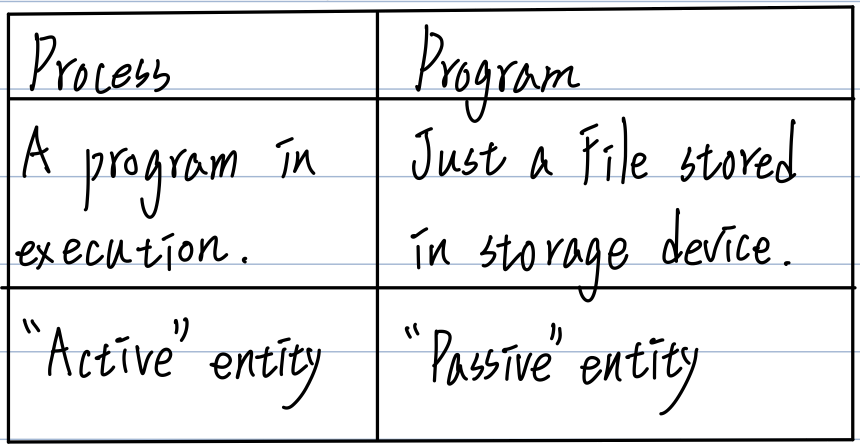 Process
Program
A program in
execution.
Just a File stored
in storage device.
"Active" entity
"Passive" entity